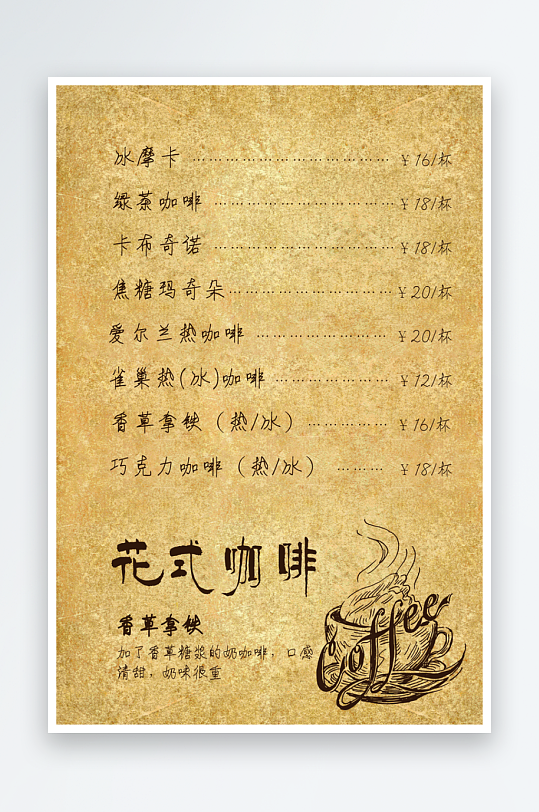 冰摩卡 ………………………… ￥16/杯
绿茶咖啡 ……………………… ￥18/杯
卡布奇诺 ……………………… ￥18/杯
焦糖玛奇朵 …………………… ￥20/杯
爱尔兰热咖啡 ………………… ￥20/杯
雀巢热(冰)咖啡 ……………… ￥12/杯
香草拿铁（热/冰） ………… ￥16/杯
巧克力咖啡（热/冰） ……… ￥18/杯
花式咖啡
香草拿铁
加了香草糖浆的奶咖啡，口感
清甜，奶味很重
Coffee